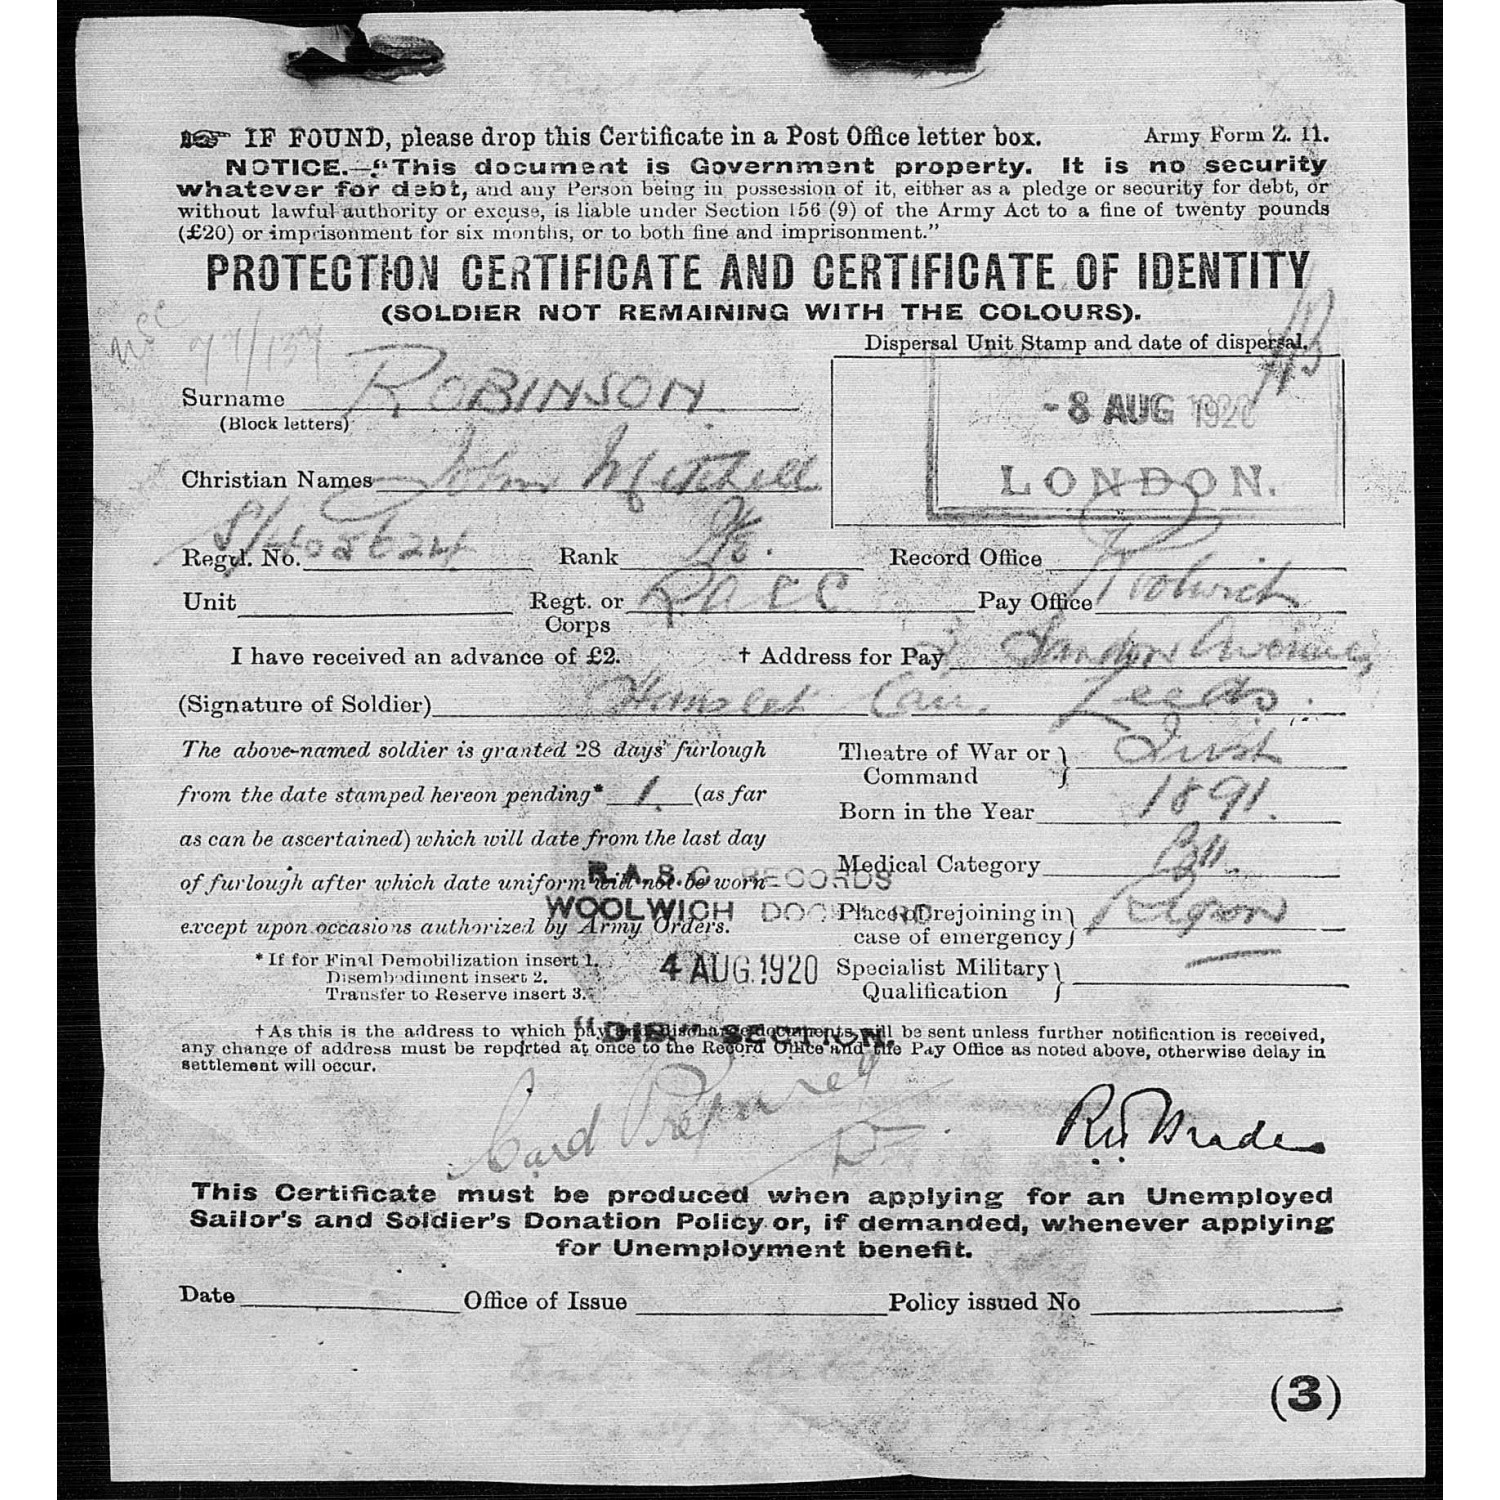 IF FOUND, please drop this Certificate in a Post Office letter box. Army Form Z. 11.
NOTICE.—"This document is Government property. It is no security
whatever for debt, and any Person being in possession of it, either as a pledge or security for debt, or
without lawful authority or excuse, is liable under Section 156 (9) of the Army Act to a fine of twenty pounds
(£20) or imprisonment for six months, or to both fine and imprisonment."
PROTECTION CERTIFICATE AND CERTIFICATE OF IDENTITY
(SOLDIER NOT REMAINING WITH THE COLOURS).
Dispersal Unit Stamp and date of dispersal.
77/137
Surname ROBINSON
(Block letters)
-8 AUG 1920
LONDON.
Christian Names John Mitchell
Regtl. No. S/405624 Rank Record Office
Unit Regt. or Corps RASC Pay Office Woolwich
I have received an advance of £2. † Address for Pay Avenue,
(Signature of Soldier) Hunslet Carr. Leeds.
The above-named soldier is granted 28 days' furlough
from the date stamped hereon pending* 1. (as far
as can be ascertained) which will date from the last day
of furlough after which date uniform will not be worn
except upon occasions authorized by Army Orders.
* If for Final Demobilization insert 1.
Disembodiment insert 2.
Transfer to Reserve insert 3.
Theatre of War or Command
Born in the Year 1891.
Medical Category BII.
Place of rejoining in case of emergency Ripon
Specialist Military Qualification
R.A.S.C. RECORDS
WOOLWICH DOCKYARD
4 AUG. 1920
"DIS." SECTION.
† As this is the address to which pay and discharge documents will be sent unless further notification is received,
any change of address must be reported at once to the Record Office and the Pay Office as noted above, otherwise delay in
settlement will occur.
Card Prepared
This Certificate must be produced when applying for an Unemployed
Sailor's and Soldier's Donation Policy or, if demanded, whenever applying
for Unemployment benefit.
Date Office of Issue Policy issued No
(3)